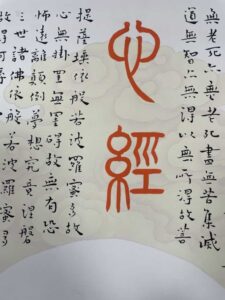 無老死亦無老死盡無苦集滅
道無智亦無得以無所得故菩
心經
提薩埵依般若波羅蜜多故
心無掛罣無罣碍故無有恐
怖遠離顛倒夢想究竟涅槃
三世諸佛依般若波羅蜜多
故得阿